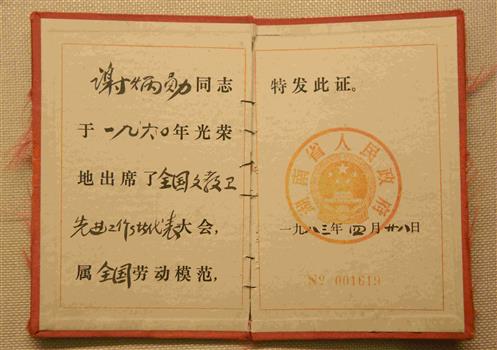 谢炳勋同志
于一九六〇年光荣
地出席了全国文教卫
先进工作者代表大会，
属全国劳动模范，
特发此证。
湖南省人民政府
一九八三年四月廿八日
Nº 001619